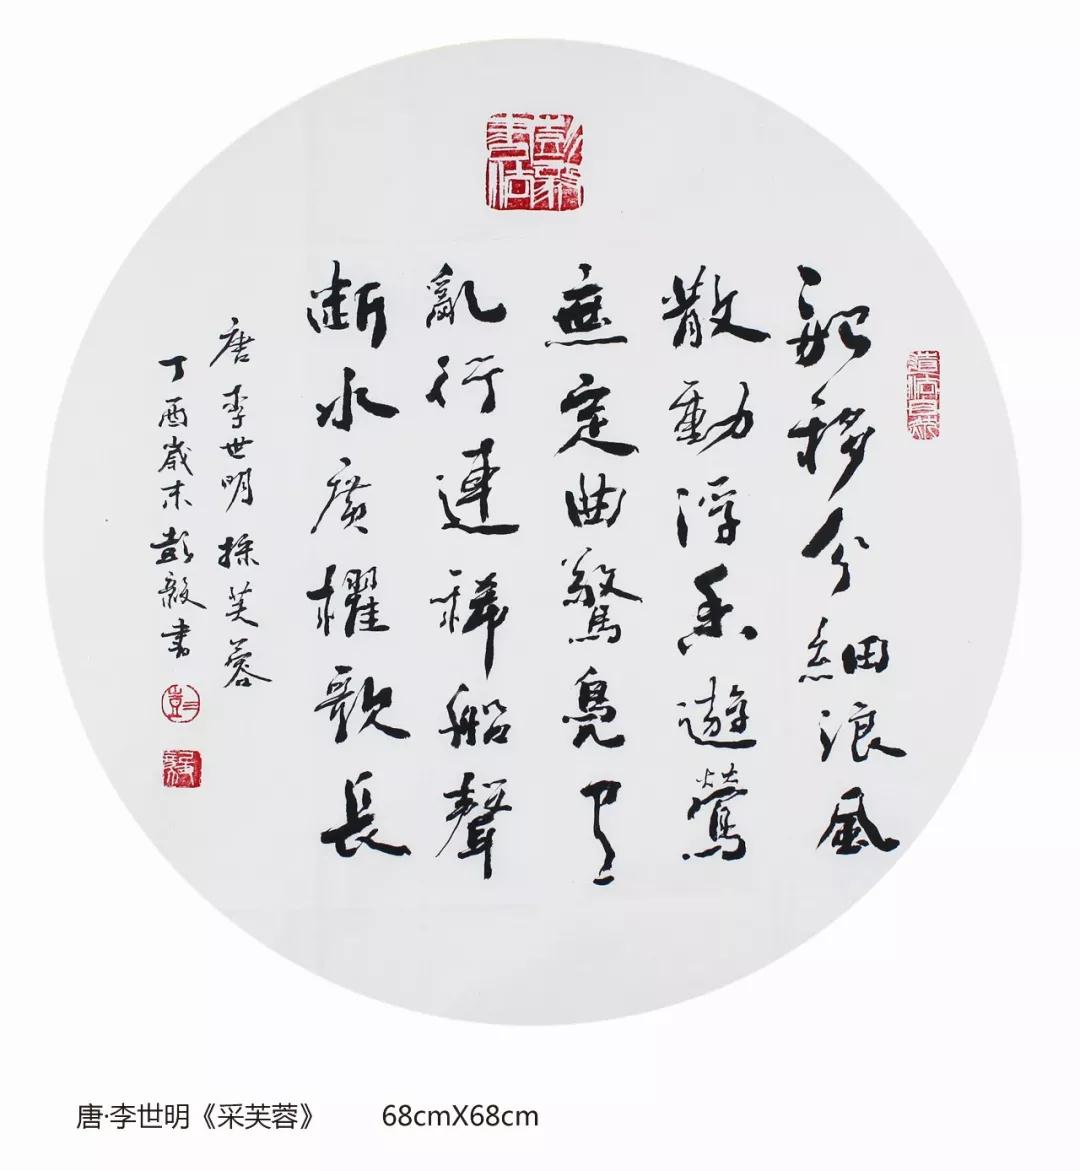 船移分細浪風
散動浮香遊鶯
無定曲驚鳧有
亂行連稀船聲
斷水廣櫂歌長
唐李世明採芙蓉
丁酉歲末彭毅書
彭
毅
唐·李世明《采芙蓉》 68cmX68cm